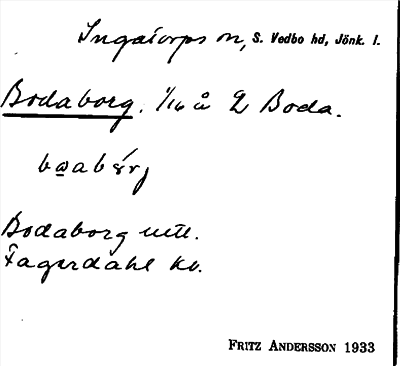 Ingatorps sn, S. Vedbo hd, Jönk. l.
Bodaborg. 1/16 å 2 Boda.
Bodaborg utt.
Fagerdahl kv.
FRITZ ANDERSSON 1933